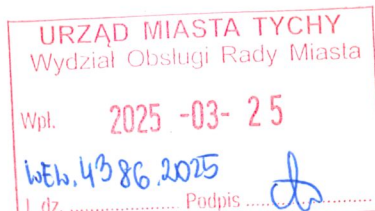 URZĄD MIASTA TYCHY
Wydział Obsługi Rady Miasta
Wpl. 2025 -03- 25
WEW. 4386.2025
L.dz. .................... Podpis ....................